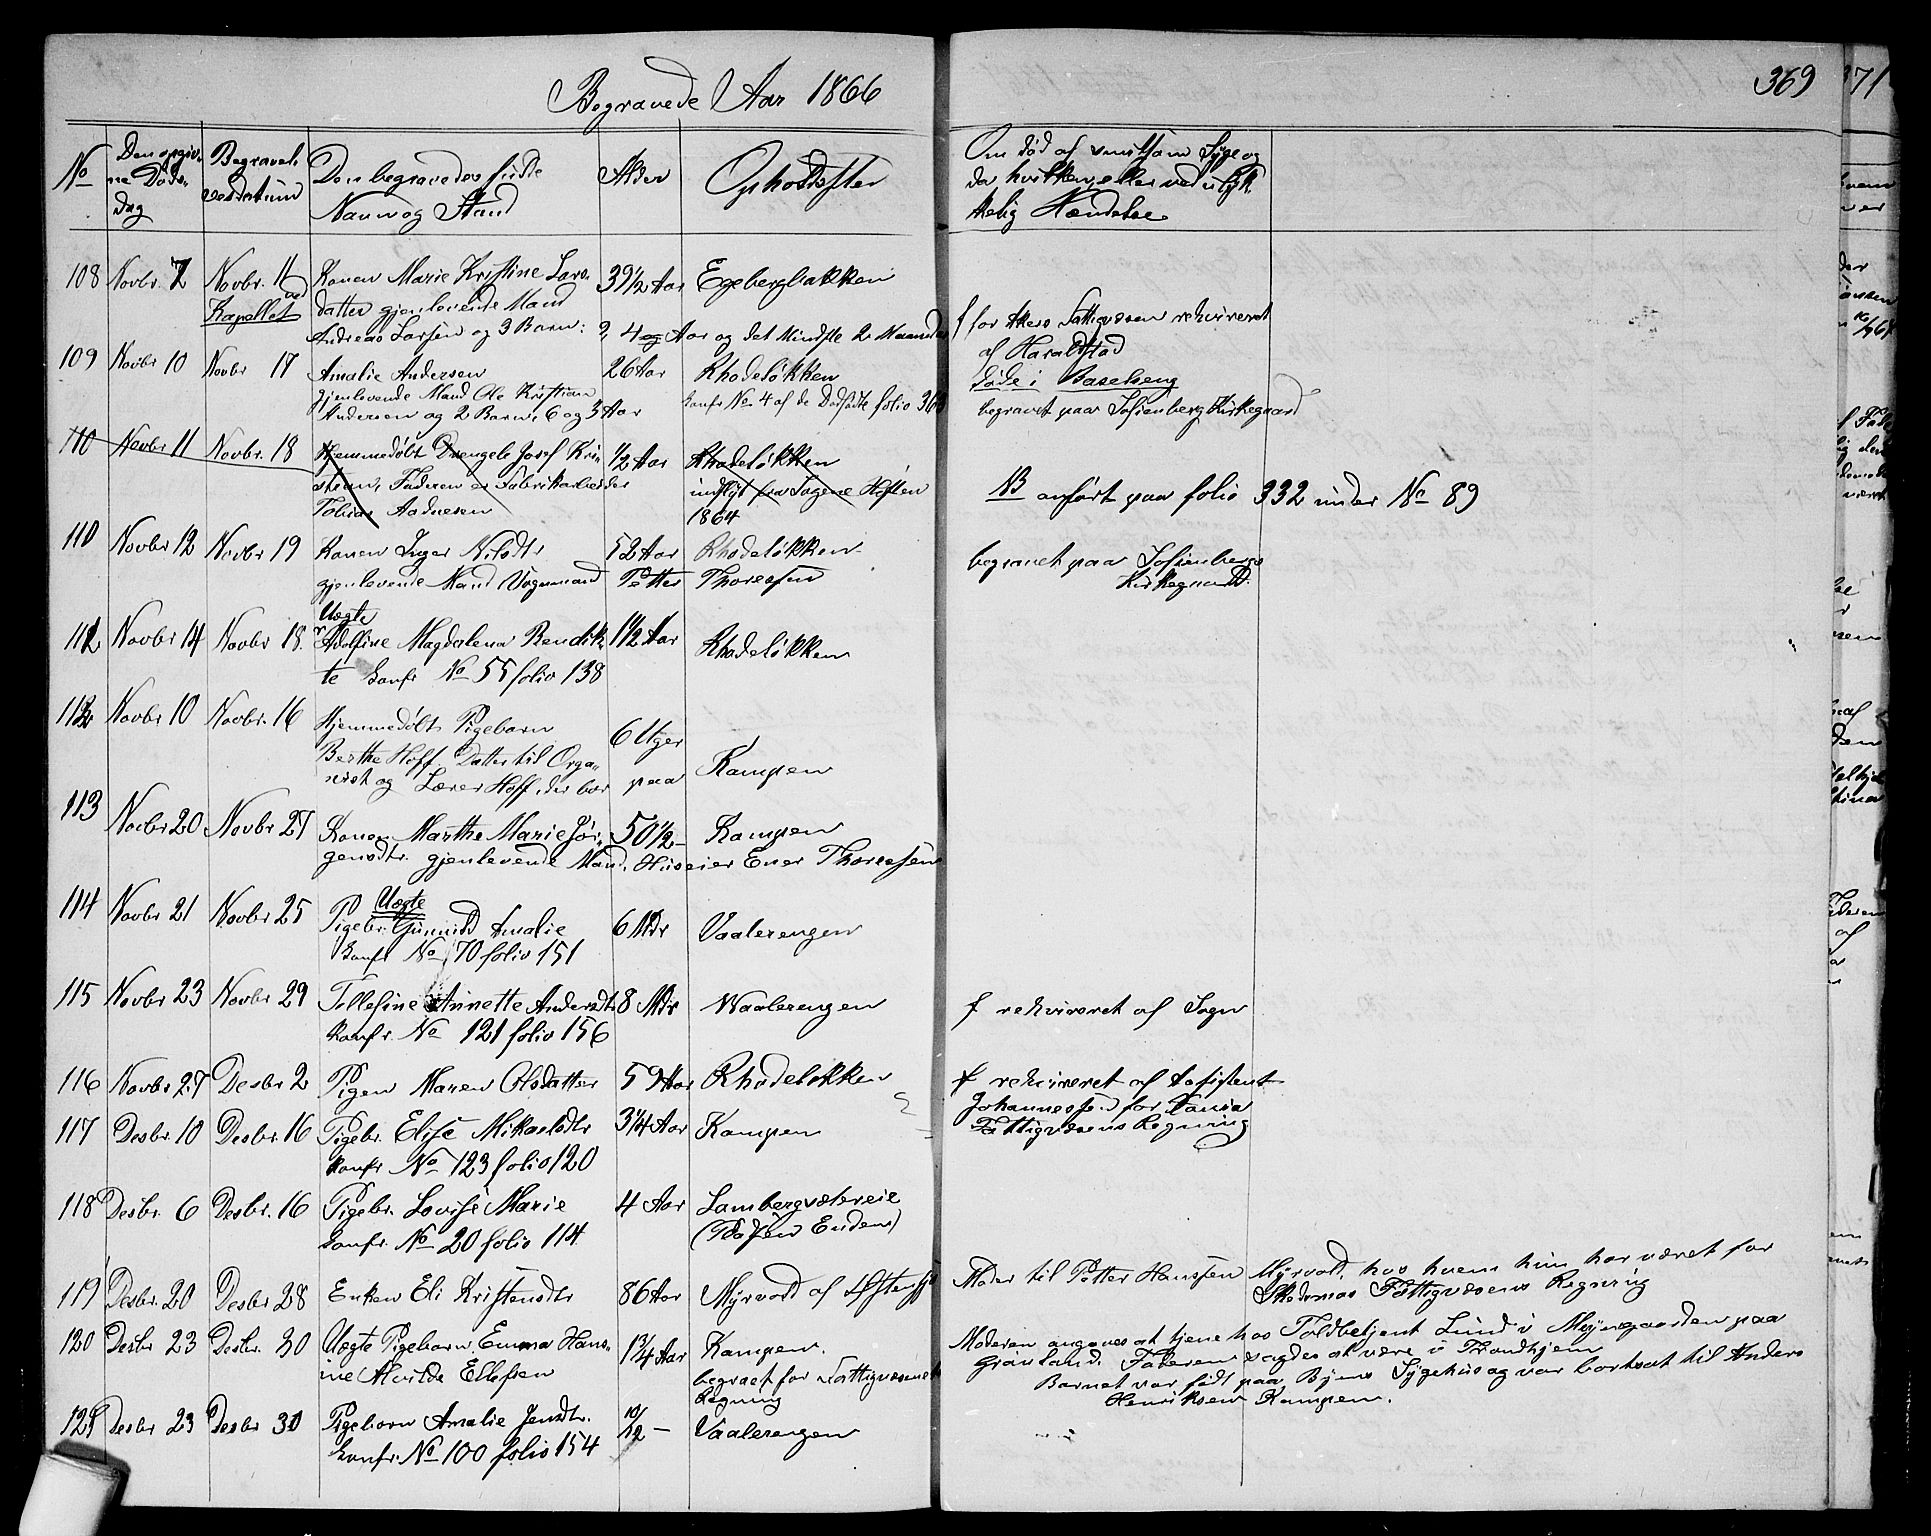 Begravede Aar 1866
369
371
No
Den opgiv-
ne Døds-
dag
Begravel-
sesdatum
Den begravedes fulde
Navn og Stand
Alder
Opholdssted
Om død af smitsom Syge og
da hvilken, eller ved ulyk-
kelig Hændelse
108 Novbr. 7 Novbr. 11 Konen Marie Kristine Lars- 39 1/2 Aar Egebergbakken
ved Kapellet datter gjenlevende Mand
Andreas Larsen og 3 Børn: 9, 4 og Aar og det Mindste 2 Maaneder
109 Novbr 10 Novbr 17 Amalie Andersen 26 Aar Rhodeløkken
gjenlevende Mand Ole Kristian konfr No 4 af de Dødfødte folio 363
Andersen og 2 Børn, 6 og 3 Aar
f for Akers Fattigvæsen rekvireret
af Haraldstad
døde i Baselseng
begravet paa Sofienberg Kirkegaard
110 Novbr 11 Novbr. 18 Hjemmedøbt Drengeb. Josef Kri- 1/2 Aar Rhodeløkken
stian, Faderen er Fabrikarbeider indflyt fra Sagene Høsten
Tobias Aadnesen 1864
NB anført paa folio 332 under No 89
110 Novbr 12 Novbr 19 Konen Inger Nilsdtr 52 Aar Rhodeløkken
gjenlevende Mand Vognmand Petter Thoresen
begravet paa Sofienbergs
Kirkegaard.
Uægte
112 Novbr 14 Novbr 18. Adolfine Magdalena Bendik- 1 1/2 Aar Rhodeløkken
te konfr No 55 folio 138
112 Novbr 10 Novbr. 16 Hjemmedøbt Pigebarn 6 Uger
Berthe Hoff. Datter til Orga-
nist og Lærer Hoff, der bor paa Kampen
113 Novbr 20 Novbr 27 Konen Marthe Marie Jør- 50 1/2 – Kampen
gensdtr. gjenlevende Mand, Huseier Ener Thoresen
Uægte
114 Novbr 21 Novbr 25 Pigebr. Gunnild Amalie 6 Mdr Vaalerengen
konfr No 70 folio 151
115 Novbr 23 Novbr 29 Tollefine Annette Andersdtr 8 Mdr Waalerengen
konfr. No 121 folio 156
f rekvireret af Sogn
116 Novbr 27 Desbr 2 Pigen Maren Olsdatter 59 Aar Rhodeløkken
f rekvireret af Assistent
Johannessen for
Fattigvæsens Regning
117 Desbr. 10 Desbr. 16 Pigebr. Elise Mikaelsdtr 3 1/4 Aar Kampen
konfr No 123 folio 120
118 Desbr. 6 Desbr. 16 Pigebr. Lovise Marie 4 Aar Lambergsæterie
konfr. No 20 folio 114
119 Desbr. 20 Desbr 28 Enken Eli Kristensdtr 86 Aar Myrvold af Østensjø
Moder til Petter Hanssen Myrvold, hos hvem hun har været for
Skedsmos Fattigvæsens Regning
120 Desbr 23 Desbr. 30 Uægte Pigebarn Emma Hans- 1 3/4 Aar Kampen.
ine Alvilde Ellefsen begravet for Fattigvæsenets
Regning
Moderen angaves at tjene hos Toldbetjent Lund i Møjnegaarden paa
Grønland. Faderen sagdes at være i Trondhjem
Barnet var født paa Byens Sygehus og var bortsat til Anders
Henriksen Kampen.
121 Desbr 23 Desbr 31 Pigebarn Amalie Jensdtr. 10/12 – Vaalerengen
konfr. No 100 folio 154